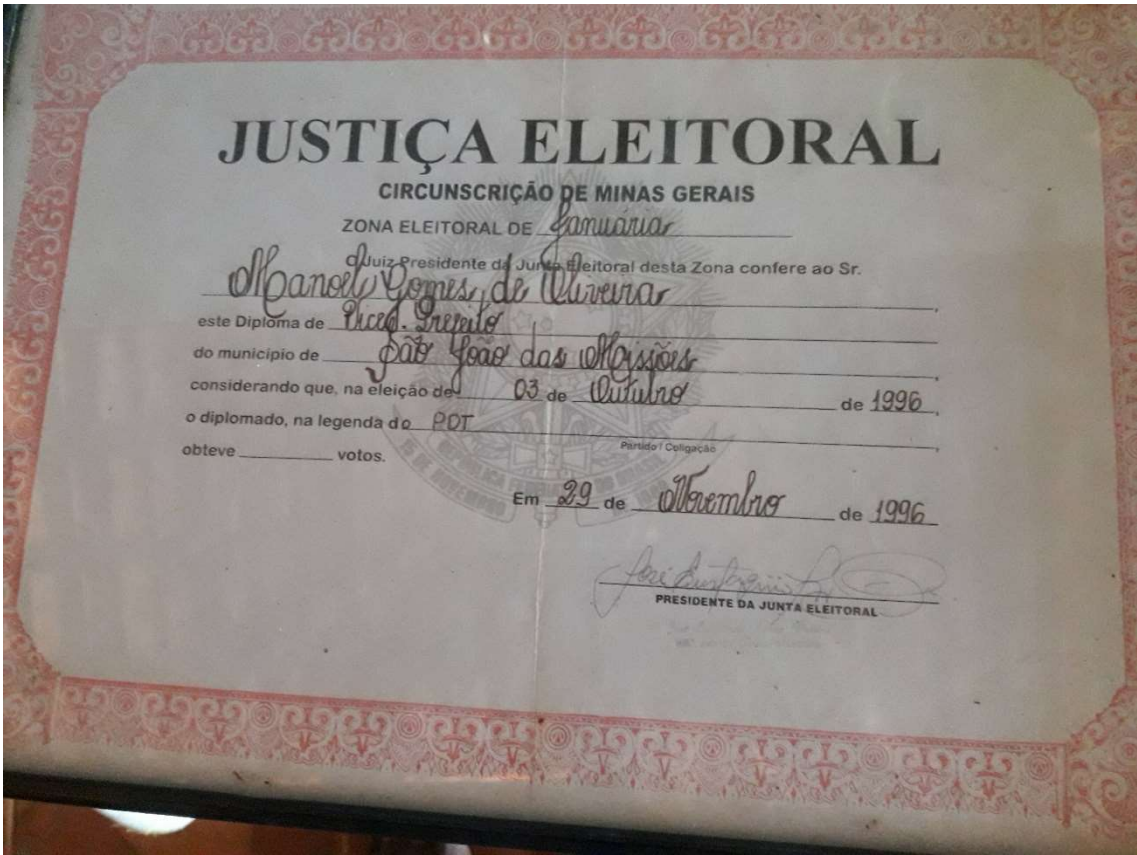 JUSTIÇA ELEITORAL
CIRCUNSCRIÇÃO DE MINAS GERAIS
ZONA ELEITORAL DE Januária
O Juiz Presidente da Junta Eleitoral desta Zona confere ao Sr.
Manoel Gomes de Oliveira,
este Diploma de Vice Prefeito
do município de São João das Missões,
considerando que, na eleição de 03 de Outubro de 1996,
o diplomado, na legenda do PDT,
Partido / Coligação
obteve ________ votos.
Em 29 de Novembro de 1996
José
PRESIDENTE DA JUNTA ELEITORAL